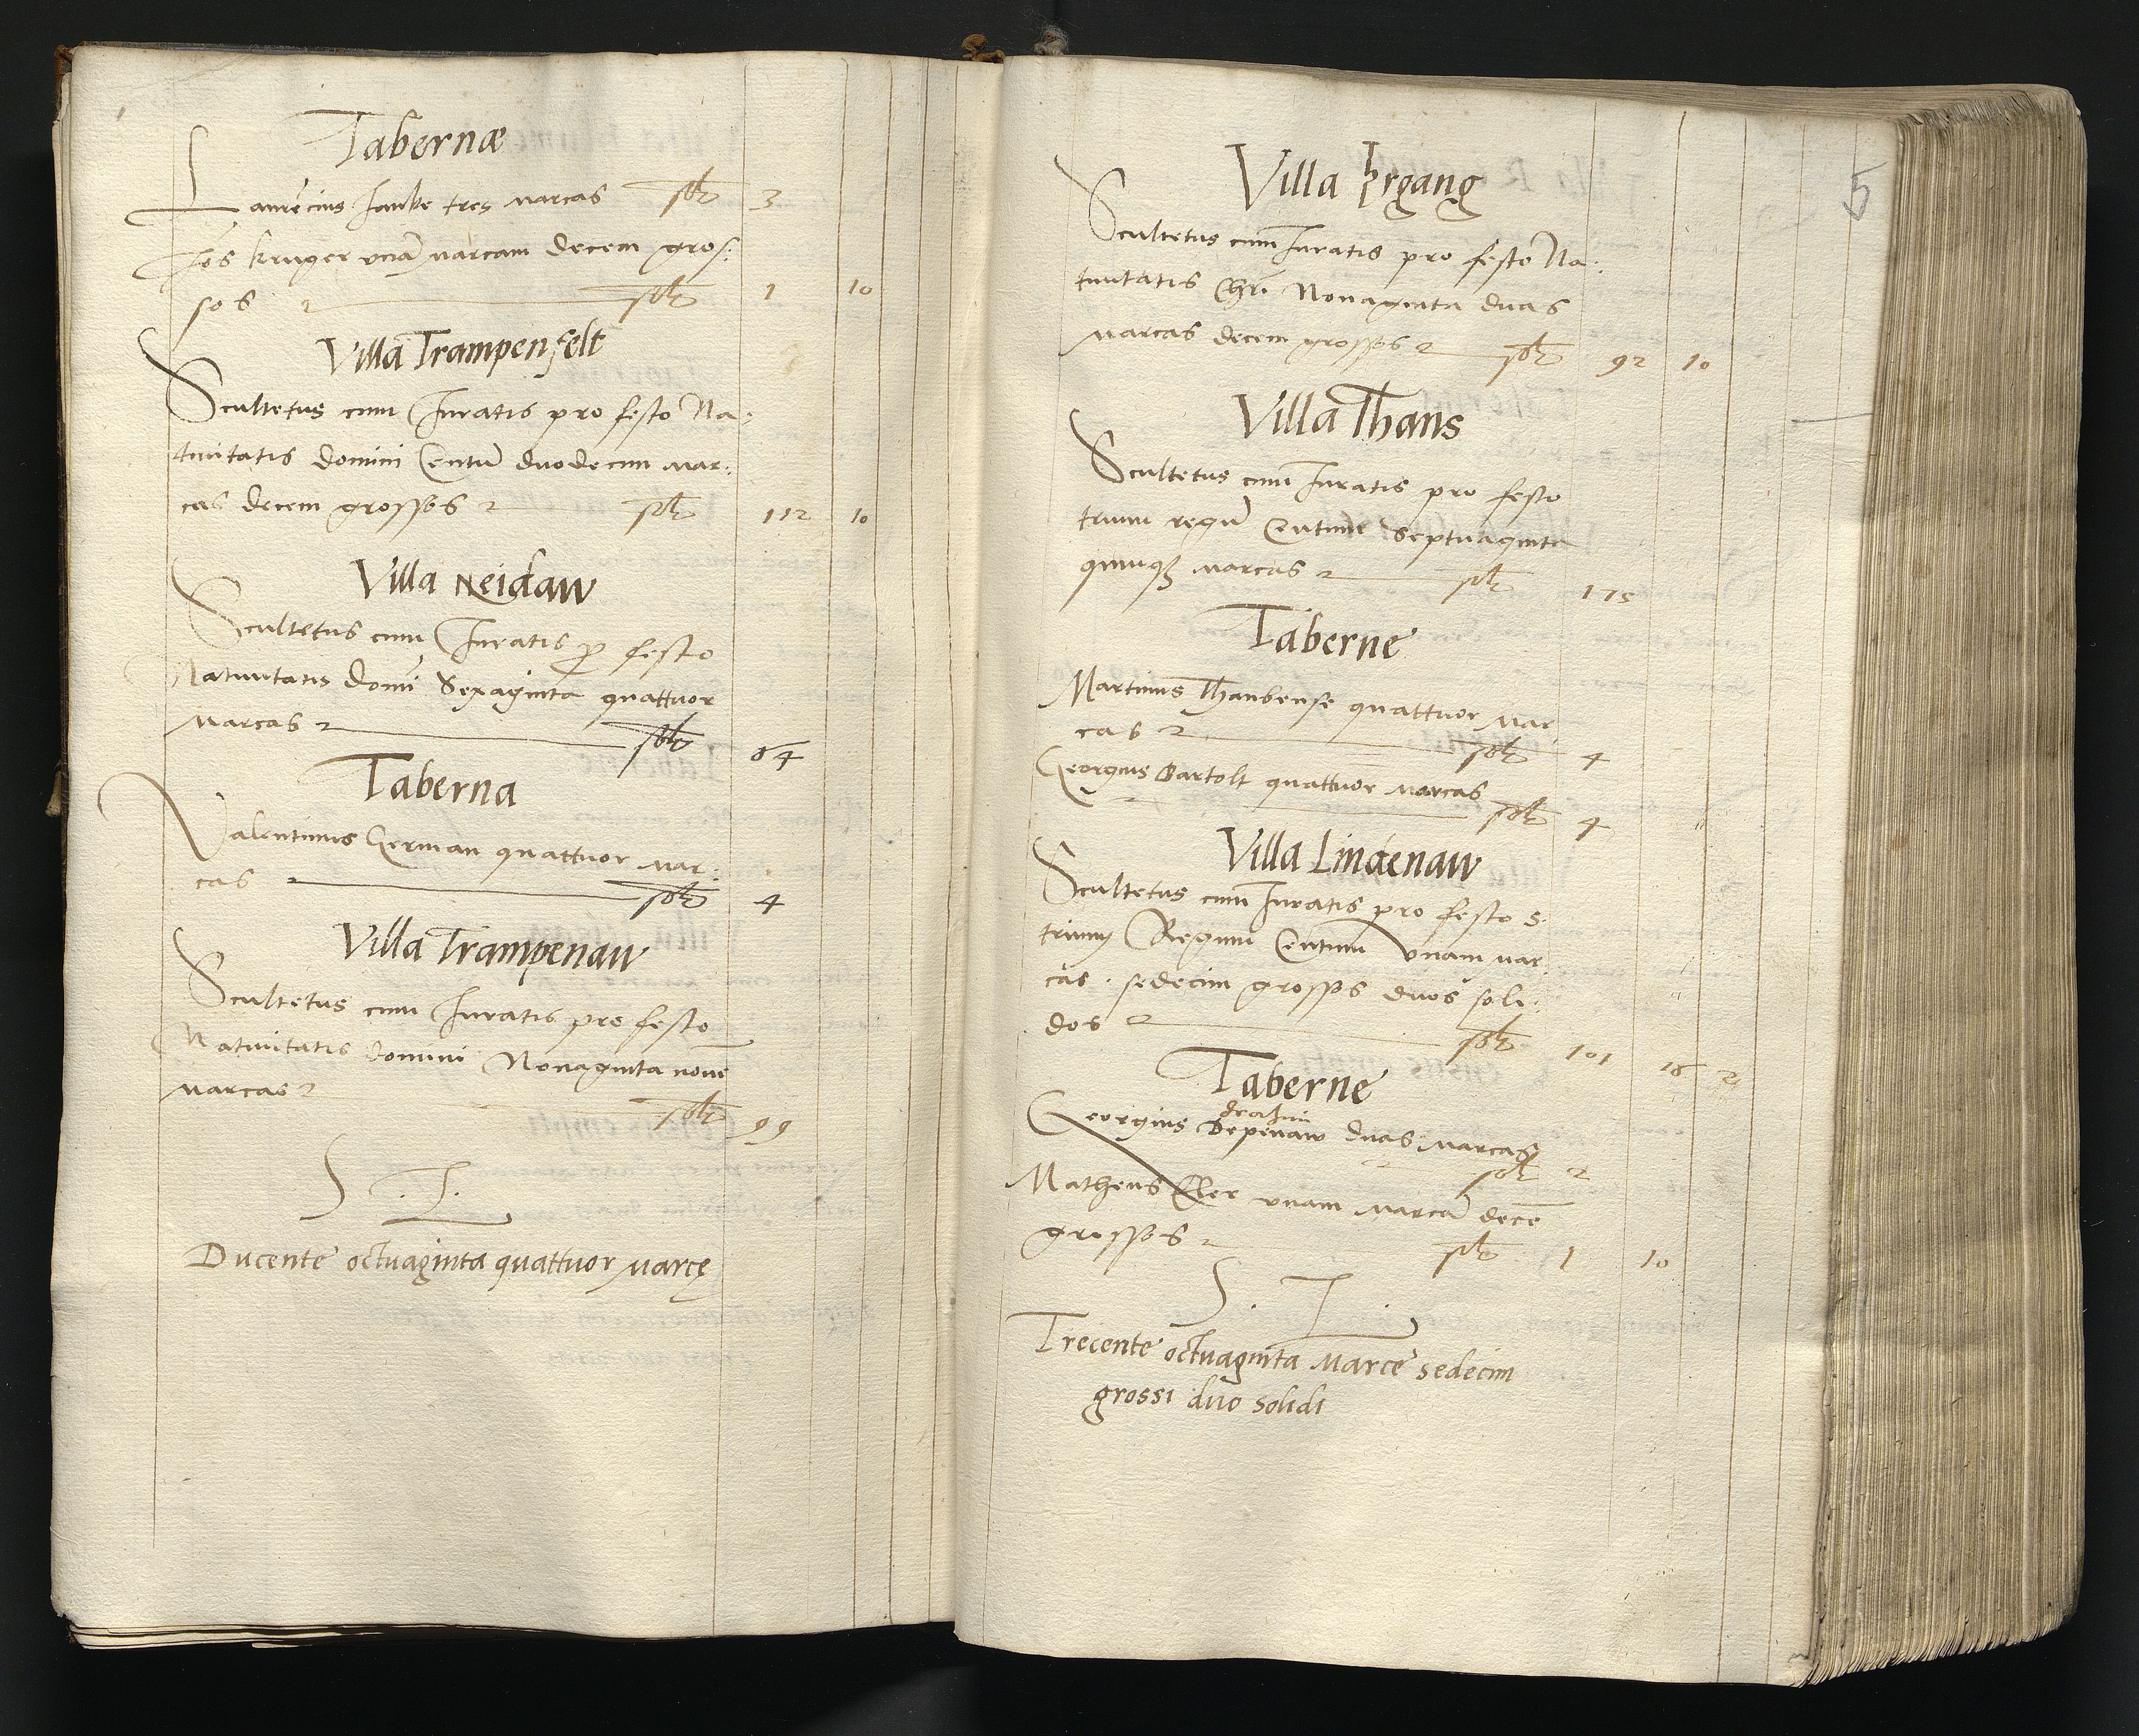 Tabernæ
Laurēcius Haube tres marcas solt 3
Hos Kruger unā marcam decem gros:
sos solt 1 10
Villa Trampenfelt
Scultetus cum Iuratis pro festo Na:
tiuitatis domini Centū duodecim mar:
cas decem grossos solt 112 10
Villa Neidaw
Scultetus cum Iuratis p festo
Natiuitatis domi Sexaginta quattuor
marcas solt 64
Taberna
Valentinus German quattuor mar:
cas solt 4
Villa Trampenaw
Scultetus cum Iuratis pro festo
Natiuitatis domini Nonaginta nouē
marcas solt 99
S. L.
Ducente octuaginta quattuor marcę
5
Villa Irgang
Scultetus cum Iuratis pro festo Na:
tiuitatis Chri Nonaginta duas
marcas decem grossos solt 92 10
Villa Thans
Scultetus cum Iuratis pro festo
trium regū Centum septuaginta
quinq3 marcas solt 175
Taberne
Martinus Thaubense quattuor mar
cas solt 4
Georgius Bartolt quattuor marcas
solt 4
Villa Lindenaw
Scultetus cum Iuratis pro festo s.
trium Regum Centum unam mar:
cas sedecim grossos duos soli:
dos solt 101 16 2
Taberne
Georgius Depenaw duas marcas
solt 2
Matheus Eler unam marcā decē
grossos solt 1 10
S. T.
Trecente octuaginta marce sedecim
grossi duo solidi